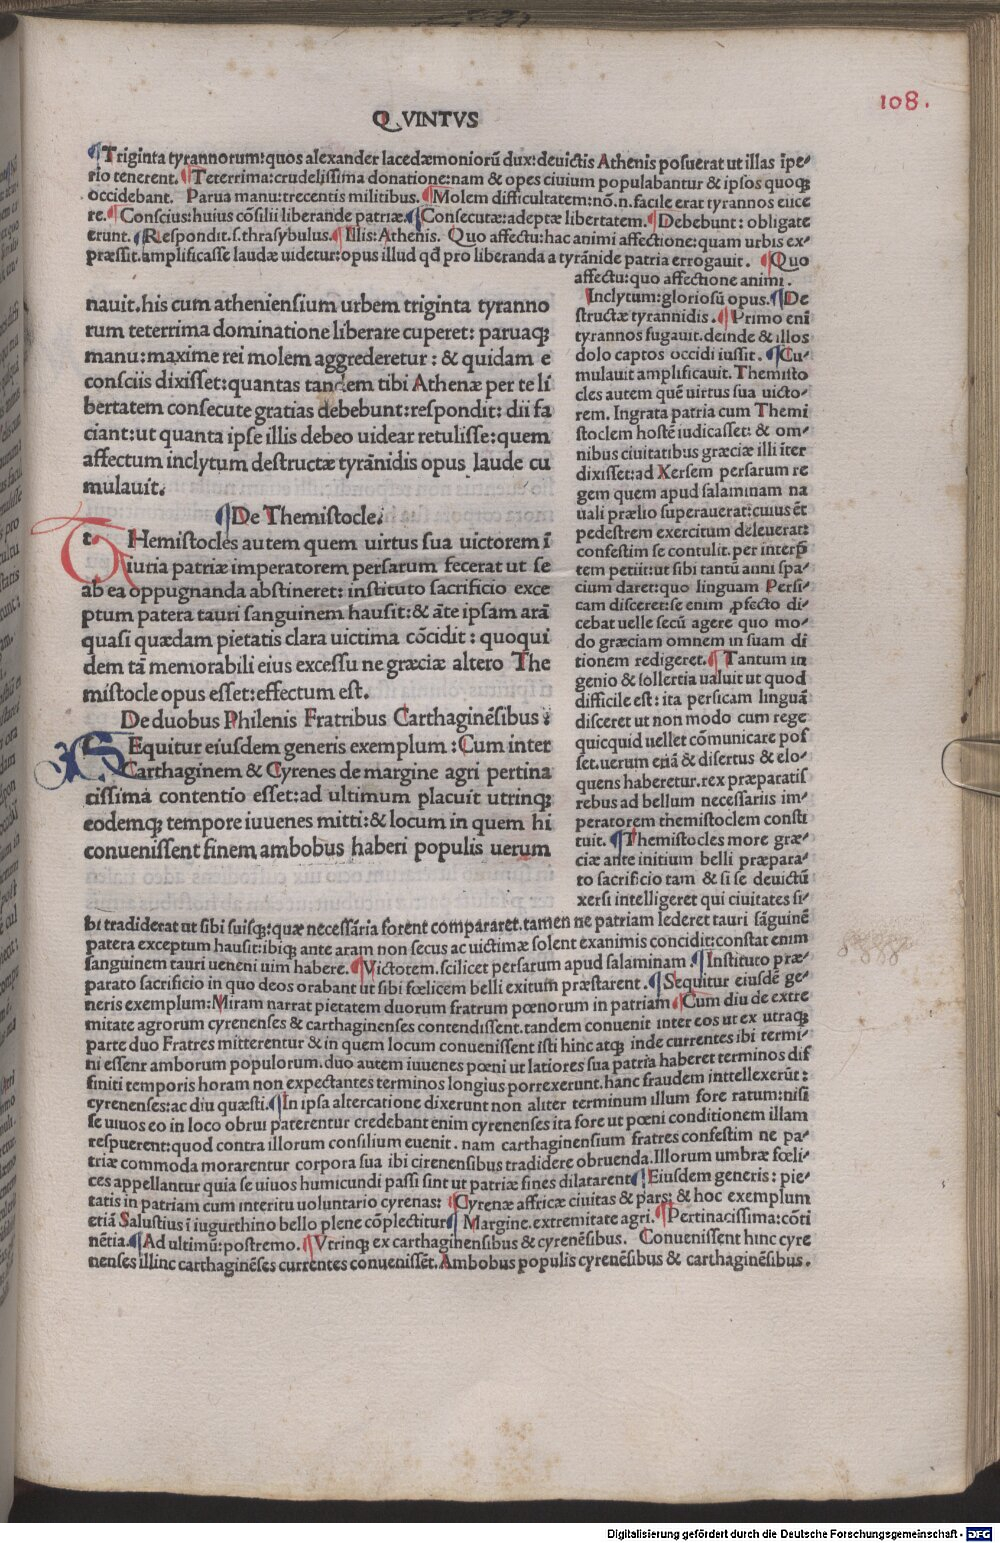 108.
QVINTVS
¶Triginta tyrannorum:quos alexander lacedæmoniorũ dux:deuictis Athenis posuerat ut illas ĩpe⸗
rio tenerent.¶Teterrima:crudelissima donatione:nam & opes ciuium populabantur & ipsos quoqꝫ
occidebant. Parua manu:trecentis militibus.¶Molem difficultatem:nõ.n.facile erat tyrannos eiice
re.¶Conscius:huius cõsilii liberande patriæ.¶Consecutæ:adeptæ libertatem.¶Debebunt:obligate
erunt.¶Respondit.s.thrasybulus.¶Illis:Athenis. Quo affectu:hac animi affectione:quam urbis ex⸗
præssit.amplificasse laudæ uidetur:opus illud qd̃ pro liberanda a tyrãnide patria errogauit. ¶Quo
affectu:quo affectione animi.
nauit.his cum atheniensium urbem triginta tyranno
rum teterrima dominatione liberare cuperet: paruaqꝫ
manu:maxime rei molem aggrederetur: & quidam e
consciis dixisset:quantas tandem tibi Athenæ per te li
bertatem consecute gratias debebunt:respondit: dii fa
ciant:ut quanta ipse illis debeo uidear retulisse:quem
affectum inclytum destructæ tyrãnidis opus laude cu
mulauit.
¶De Themistocle.
THemistocles autem quem uirtus sua uictorem ĩ
iuria patriæ imperatorem persarum fecerat ut se
ab ea oppugnanda abstineret: instituto sacrificio exce
ptum patera tauri sanguinem hausit:& ãte ipsam arã
quasi quædam pietatis clara uictima cõcidit: quoqui
dem tã memorabili eius excessu ne græciæ altero The
mistocle opus esset:effectum est.
De duobus Philenis Fratribus Carthaginẽsibus:
SEquitur eiusdem generis exemplum:Cum inter
Carthaginem & Cyrenes de margine agri pertina
cissima contentio esset:ad ultimum placuit utrinqꝫ
eodemqꝫ tempore iuuenes mitti:& locum in quem hi
conuenissent finem ambobus haberi populis uerum
Inclytum:gloriosũ opus.¶De
structæ tyrannidis.¶Primo eni
tyrannos fugauit.deinde & illos
dolo captos occidi iussit.¶Cu⸗
mulauit amplificauit.Themisto
cles autem quẽ uirtus sua uicto⸗
rem. Ingrata patria cum Themi
stoclem hostẽ iudicasset: & om⸗
nibus ciuitatibus græciæ illi ĩter
dixisset:ad Xersem persarum re
gem quem apud salaminam na
uali prælio superauerat:cuius ẽt
pedestrem exercitum deleuerat:
confestim se contulit.per interp̃
tem petiit:ut sibi tantũ anni spa⸗
cium daret:quo linguam Persi⸗
cam disceret:se enim ꝓfecto di⸗
cebat uelle secũ agere quo mo⸗
do græciam omnem in suam di
tionem redigeret.¶Tantum in
genio & sollertia ualuit ut quod
difficile est: ita persicam linguã
disceret ut non modo cum rege
quicquid uellet cõmunicare pos
set.uerum eriã & disertus & elo⸗
quens haberetur.rex præparatis
rebus ad bellum necessariis im⸗
peratorem themistoclem consti
tuit.¶Themistocles more græ⸗
ciæ ante initium belli præpara⸗
to sacrificio tam & si se deuictũ
xersi intelligeret qui ciuitates si⸗
bi tradiderat ut sibi suisqꝫ:quæ necessãria forent compararet.tamen ne patriam lederet tauri sãguinẽ
patera exceptum hausit:ibiqꝫ ante aram non secus ac uictimæ solent exanimis concidit:constat enim
sanguinem tauri ueneni uim habere.¶Victotem.scilicet persarum apud salaminam.¶Instituto præ⸗
parato sacrificio in quo deos orabant ut sibi fœlicem belli exitum præstarent.¶Sequitur eiusdẽ ge⸗
neris exemplum:Miram narrat pietatem duorum fratrum pœnorum in patriam¶Cum diu de extre
mitate agrorum cyrenenses & carthaginenses contendissent.tandem conuenit inter eos ut ex utraqꝫ
parte duo Fratres mitterentur & in quem locum conuenissent isti hinc atqꝫ inde currentes ibi termi⸗
ni essenr amborum populorum.duo autem iuuenes pœni ut latiores sua patria haberet terminos dif
finiti temporis horam non expectantes terminos longius porrexerunt.hanc fraudem inttellexerũt:
cyrenenses:ac diu quæsti.¶In ipsa altercatione dixerunt non aliter terminum illum fore ratum:nisi
se uiuos eo in loco obrui paterentur credebant enim cyrenenses ita fore ut pœni conditionem illam
respuerent:quod contra illorum consilium euenit. nam carthaginensium fratres confestim ne pa⸗
triæ commoda morarentur corpora sua ibi cirenensibus tradidere obruenda.Illorum umbræ fœli⸗
ces appellantur quia se uiuos humicundi passi sint ut patriæ fines dilatarent¶Eiusdem generis: pie⸗
tatis in patriam cum interitu uoluntario cyrenas: ¶Cyrenæ affricæ ciuitas & pars: & hoc exemplum
etiã Salustius ĩ iugurthino bello plene cõplectitur¶ Margine.extremitate agri.¶Pertinacissima:cõti
nẽtia.¶Ad ultimũ:postremo.¶Vtrinqꝫ ex carthaginensibus & cyrenẽsibus. Conuenissent hinc cyre
nenses illinc carthaginẽses currentes conuenissẽt.Ambobus populis cyrenẽsibus & carthaginẽsibus.
Digitalisierung gefördert durch die Deutsche Forschungsgemeinschaft - DFG